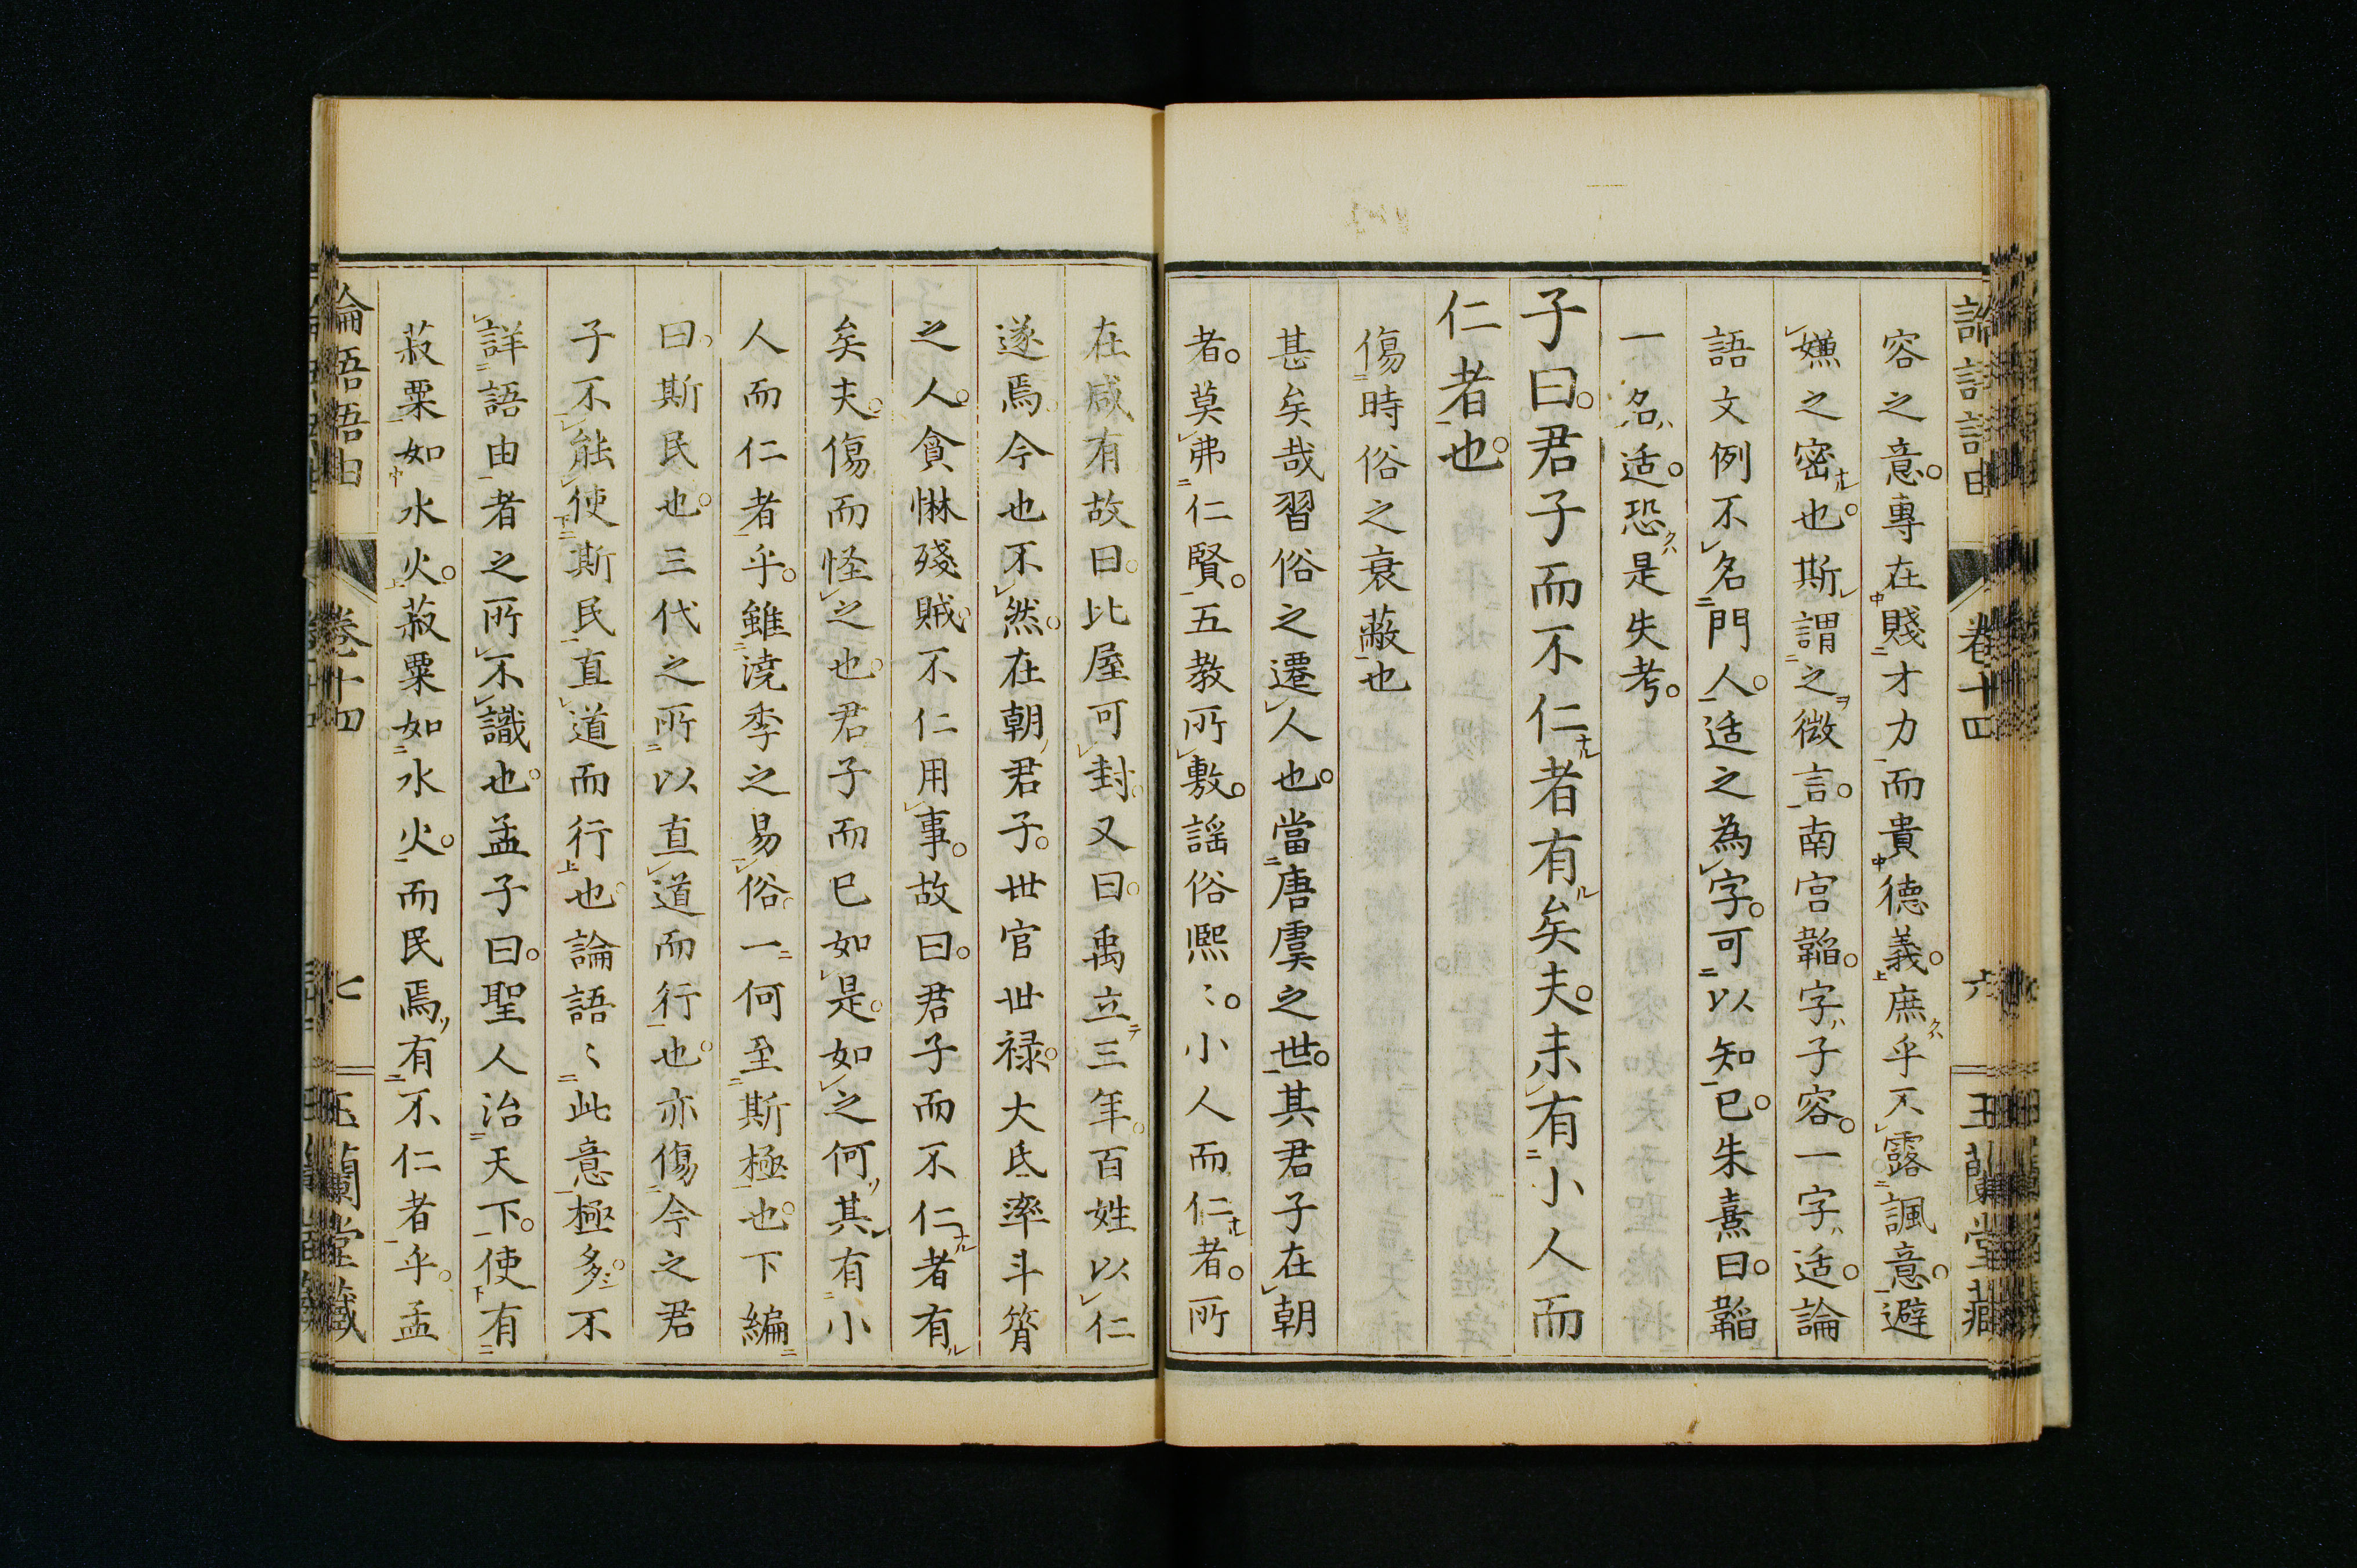 論語語由 卷十四 六 玉蘭堂藏
容之意。專在賤才力而貴德義。庶乎不露諷意。避
嫌之密也。斯謂之微言。南宮韜。字子容。一字适。論
語文例不名門人。适之為字。可以知已。朱熹曰。韜
一名适。恐是失考。
子曰。君子而不仁者有矣夫。未有小人而
仁者也。
傷時俗之衰蔽也
甚矣哉習俗之遷人也。當唐虞之世。其君子在朝
者。莫弗仁賢。五教所敷。謡俗熈〻。小人而仁者。所
在咸有故曰。比屋可封。又曰。禹立三年。百姓以仁
遂焉。今也不然。在朝君子。世官世禄。大氐率斗筲
之人。貪惏殘賊。不仁用事。故曰。君子而不仁者有
矣夫。傷而怪之也。君子而已如是。如之何其有小
人而仁者乎。雖澆季之易俗。一何至斯極也。下編
曰。斯民也。三代之所以直道而行也。亦傷今之君
子不能使斯民直道而行也。論語〻此意極多。不
詳語由者之所不識也。孟子曰。聖人治天下。使有
菽粟如水火。菽粟如水火。而民焉有不仁者乎。孟
論語語由 卷十四 七 玉蘭堂藏